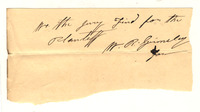 We the jury find for the
Plantiff
Wm R. Grimsley